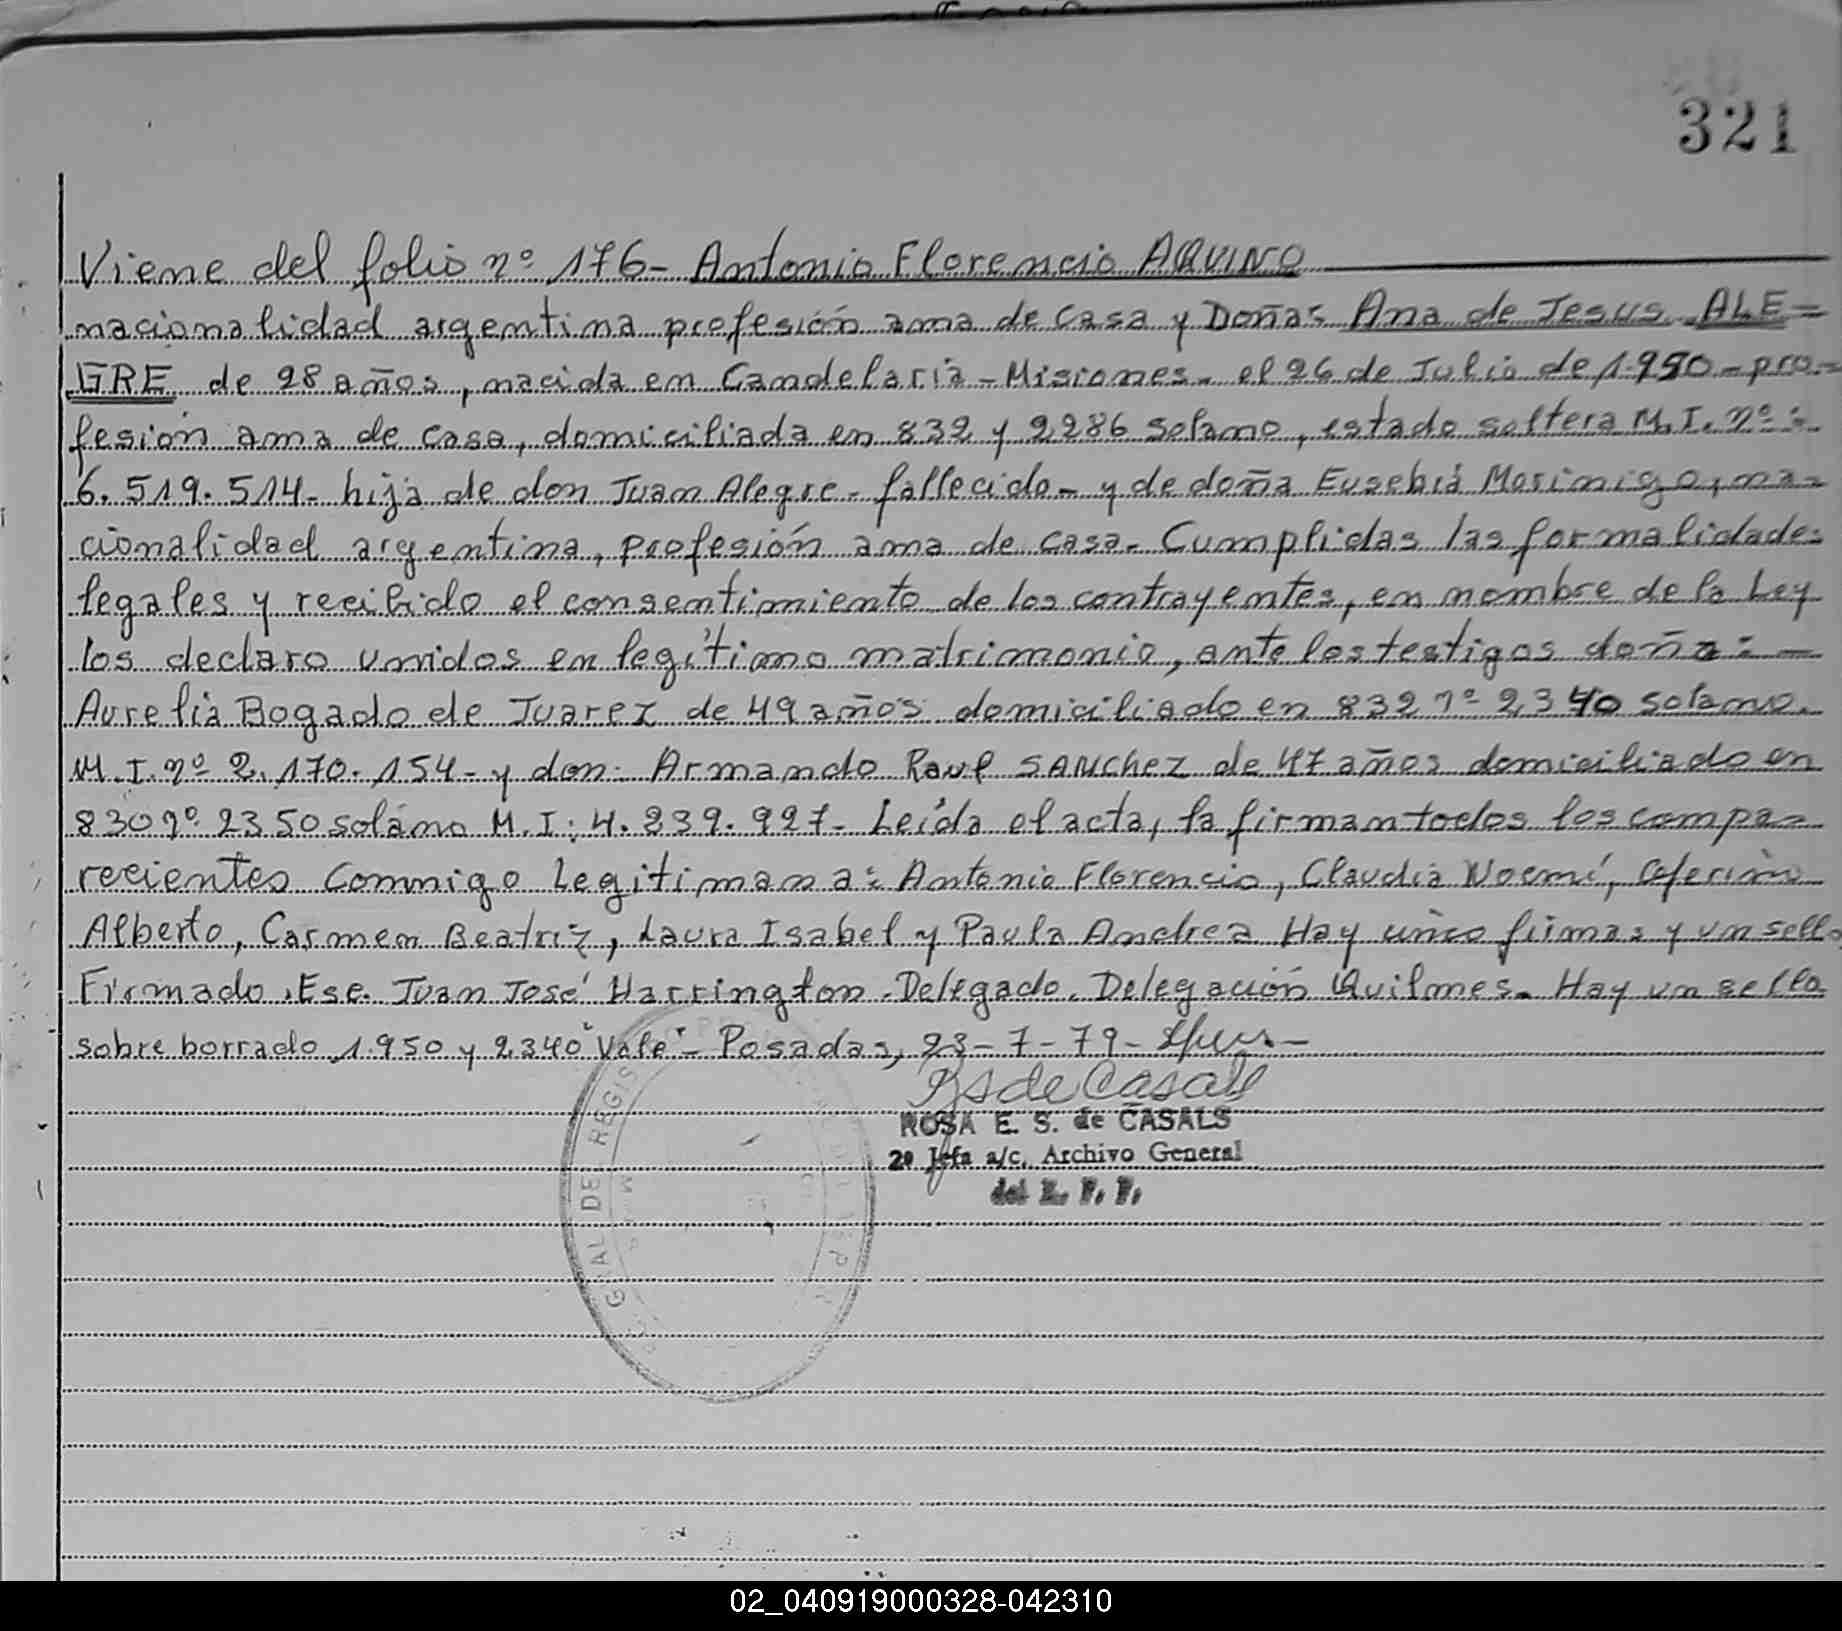 321
Viene del folio nº 176- Antonio Florencio AQUINO
nacionalidad argentina profesión ama de casa y Doña: Ana de Jesus ALE=
GRE de 28 años, nacida en Candelaria - Misiones- el 26 de Julio de 1.950 - pro=
fesión ama de casa, domiciliada en 832 y 2286 solano, estado soltera M.I. nº:
6.519.514- hija de don Juan Alegre- fallecido- y de doña Eusebia Morinigo, na=
cionalidad argentina, profesión ama de casa- Cumplidas las formalidades
legales y recibido el consentimiento de los contrayentes, en nombre de la Ley
los declaro unidos en legítimo matrimonio, ante los testigos doña: -
Aurelia Bogado de Juarez de 49 años domiciliado en 832 nº 2340 solano.
M.I. nº 2.170.154- y don: Armando Raul SANCHEZ de 47 años domiciliado en
830 nº 2350 solano M.I: 4.239.927- Leída el acta, la firman todos los compa=
recientes Conmigo Legitiman a: Antonio Florencio, Claudia Noemí, Ceferino
Alberto, Carmen Beatriz, Laura Isabel y Paula Andrea Hay cinco firmas y un sello
Firmado. Ese. Juan José Harrington. Delegado. Delegación Quilmes. Hay un sello
sobre borrado 1.950 y 2340 "Vale"- Posadas, 23-7-79-
RS de Casals
ROSA E. S. de CASALS
2º Jefa a/c. Archivo General
del R. P. P.
GRAL DEL REGIS
02_040919000328-042310